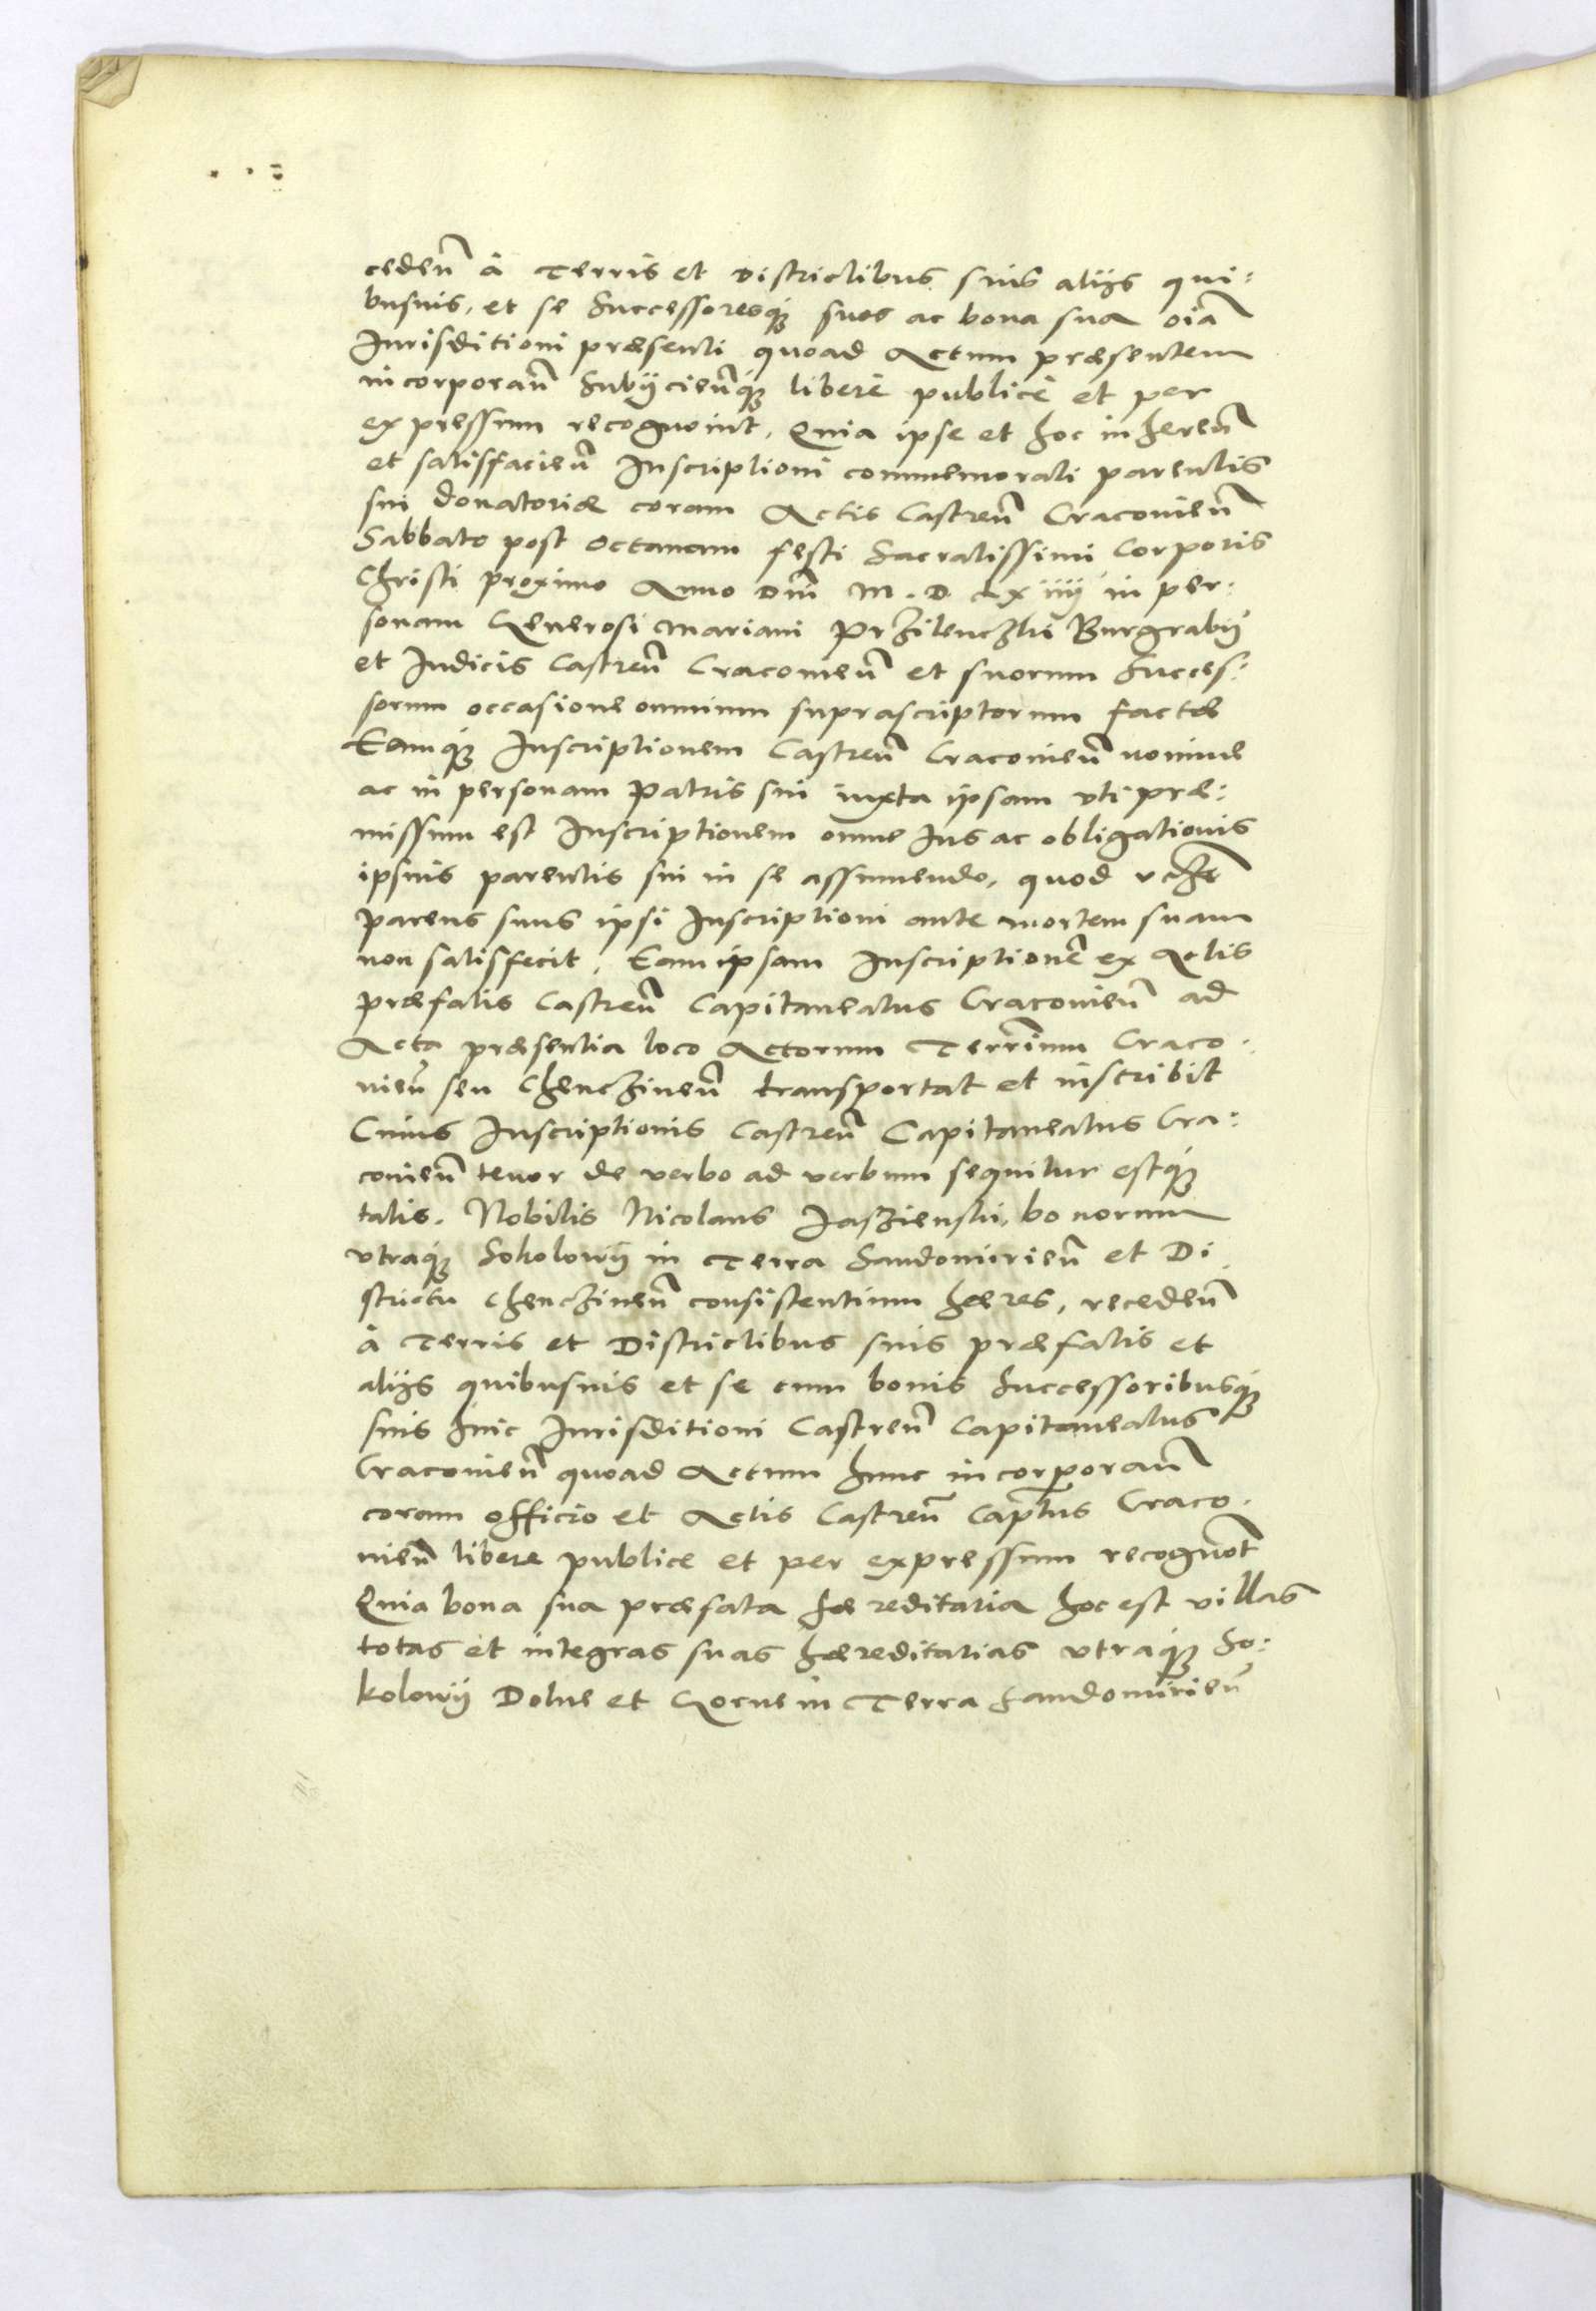 cedeñ à Terris et Districtibus suis alijs qui:
busuis, et se Successoresq́ue suos ac bona sua oīa
Jurisditioni præsenti quoad Actum præsentem
incorporañ Subijcieñq́ue liberè publicè et per
expressum recognouit, Quia ipse et hoc inhereñ
et satisfacieñ Inscriptioni commemorati parentis
sui donatoriæ coram Actis Castreñ Cracouieñ
Sabbato post octauam festi Sacratissimi Corporis
Christi proximo Anno Dñi M. D. Lxiiij in per:
sonam Generosi Mariani Przilenczki Burgrabij
et Judicis Castreñ Cracouieñ et suorum Succes:
sorum occasione omnium suprascriptorum factæ
Eamq́ue Inscriptionem Castreñ Cracouieñ nomine
ac in personam Patris sui iuxta ipsam vti præ:
missum est Inscriptionem omne Jus ac obligationis
ipsius parentis sui in se assumendo, quod
parens suus ipsi Inscriptioni ante mortem suam
non satisfecit, Eam ipsam Inscriptionē ex Actis
præfatis Castreñ Capitaneatus Cracouieñ ad
Acta præsentia loco Actorum Terrīum Craco:
uieñ seu Chenczineñ transportat et inscribit
Cuius Inscriptionis Castreñ Capitaneatus Cra:
couieñ tenor de verbo ad verbum sequitur estq́ue
talis. Nobilis Nicolaus Jaszienski, bonorum
vtraq́ue Sokolowij in Terra Sandomirieñ et Di:
strictu Chenczineñ consistentium hæres, recedeñ
à Terris et Districtibus suis præfatis et
alijs quibusuis et se cum bonis Successoribusq́ue
suis huic Jurisditioni Castreñ Capitaneatus
Cracouieñ quoad Actum hunc incorporañ
coram officio et Actis Castreñ Capītus Craco:
uieñ libere publice et per expressum recognōt
Quia bona sua præfata hæreditaria hoc est villas
totas et integras suas hæreditarias vtraq́ue So:
kolowij Dolne et Gorne in Terra Sandomirieñ